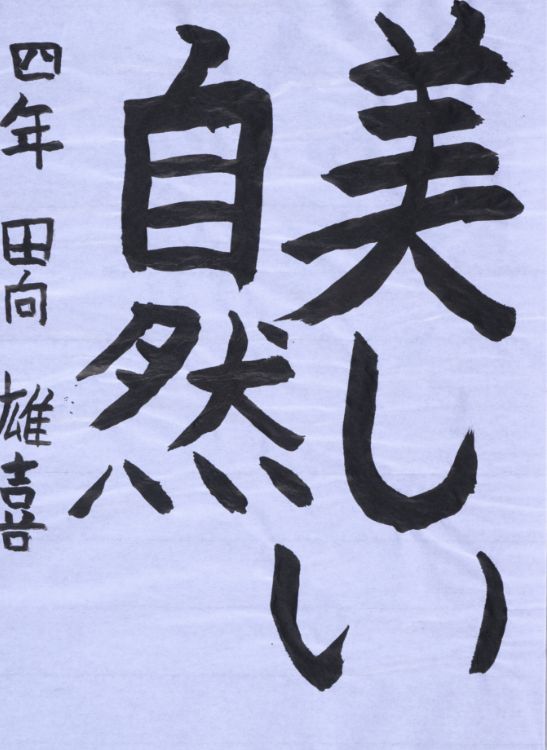 美しい
自然
四年 田向 雄喜